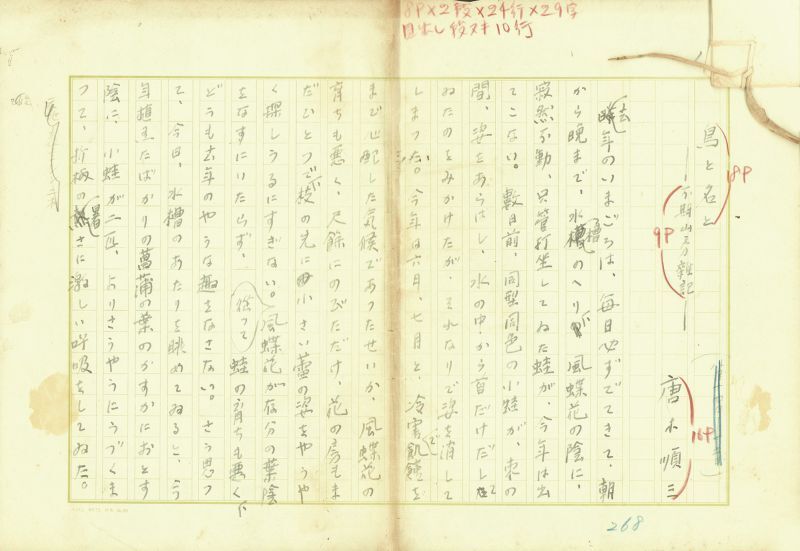 8P×2段×24行×29字
見出し 段ヌキ10行
鳥と名と
18P
9P
唐木順三
16P
去年のいまごろは、毎日必ずでてきて、朝
から晩まで、水槽のへりや風蝶花の陰に、
寂然不動、只管打坐してゐた蛙が、今年は出
てこない。数日前、同型同色の小蛙が、束の
間、姿をあらはし、水の中から首だけだして
ゐたのをみかけたが、それなりで姿を消して
しまつた。今年は六月、七月と、冷害飢饉を
まで心配した気候であつたせいか、風蝶花の
育ちも悪く、尺餘にのびただけ、花の房もま
だひとつで、枝の先に小さい蕾の姿をやうや
く探しうるにすぎない。風蝶花が存分の葉陰
をなすにいたらず、従つて蛙の育ちも悪く、
どうも去年のやうな趣をなさない。さう思つ
て、今日、水槽のあたりを眺めてゐると、今
年植ゑたばかりの菖蒲の葉のかすかにおとす
陰に、小蛙が二匹、よりさうやうにうづくま
つて、折柄の暑さに激しい呼吸をしてゐた。
268